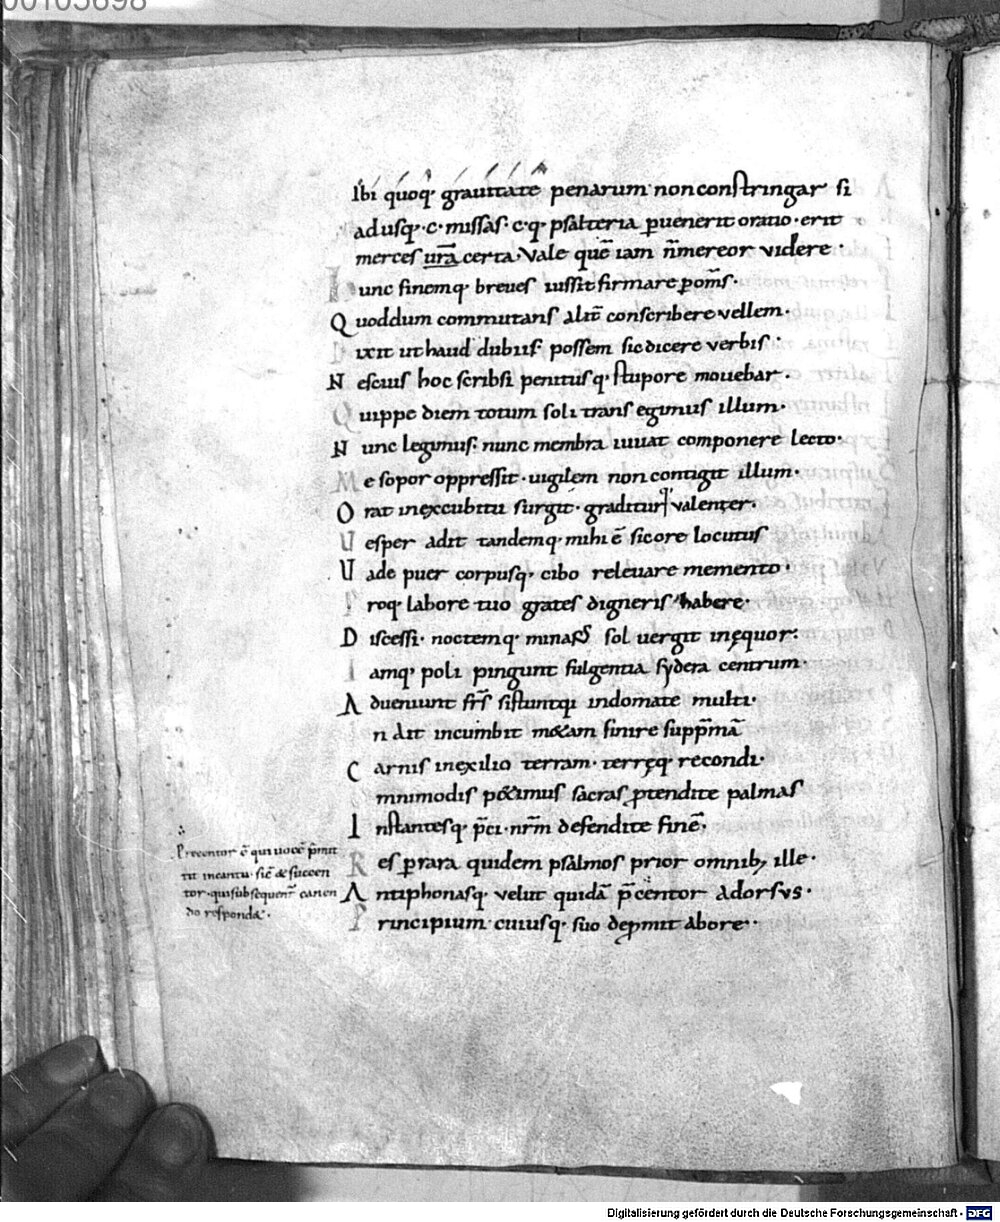 00105698
Ibi quoq; grauitate penarum non constringar si
ad usq; ·c· missas· c·q· psalteria puenerit oratio· erit
merces ura certa· Vale quē iam n̄ mereor videre·
unc finemq; breues iussit firmare pom̄s·
Quoddum commutans alit̄ conscribere vellem·
ixit ut haud dubiis· possem sic dicere verbis·
Nescius hoc scribsi penitusq; stupore mouebar·
Quippe diem totum soli trans egimus illum·
Nunc legimus· nunc membra iuuat componere lecto·
Me sopor oppressit· uigilem non contigit illum·
Orat inexcubitu surgit· graditurq; valenter·
Uesper adit tandemq; mihi ē sic ore locutus
Uade puer corpusq; cibo releuare memento·
Proq; labore tuo grates digneris habere·
Discessi· noctemq; minans sol uergit inęquor·
Iamq; poli pingunt fulgentia sydera centrum·
Adueniunt frs̄ sistuntqi indomate multi·
n ait incumbit m&am finire supp̄mā
Carnis inexilio terram· terręq; recondi·
mnimodis p&imus sacras ptendite palmas
Instantesq; p̄ci· nrm̄ defendite finē,
Res prara quidem psalmos prior omnib; ille·
Antiphonasq; velut quidā p̄centor adorsus·
Principium· cuiusq; suo depmit abore··
Precentor ē qui uocē p̄mit
tit incantu· sic̄ & succen
tor· qui subsequent̄ canen
do respond&·
Digitalisierung gefördert durch die Deutsche Forschungsgemeinschaft - DFG